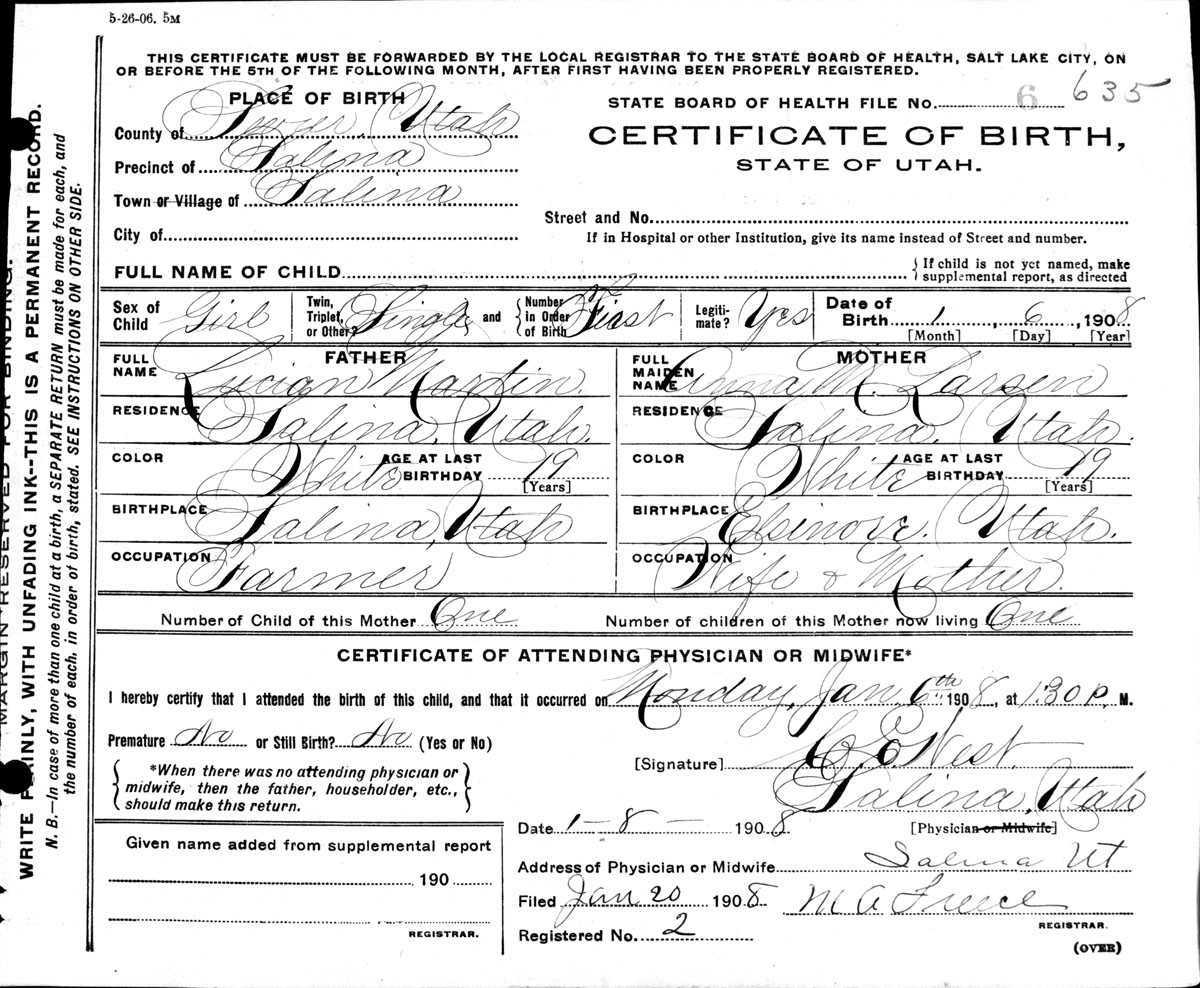 5-26-06. 5M
THIS CERTIFICATE MUST BE FORWARDED BY THE LOCAL REGISTRAR TO THE STATE BOARD OF HEALTH, SALT LAKE CITY, ON
OR BEFORE THE 5TH OF THE FOLLOWING MONTH, AFTER FIRST HAVING BEEN PROPERLY REGISTERED.
PLACE OF BIRTH
County of Sevier, Utah
Precinct of Salina
Town or Village of Salina
City of
STATE BOARD OF HEALTH FILE No. 6 635
CERTIFICATE OF BIRTH,
STATE OF UTAH.
Street and No.
If in Hospital or other Institution, give its name instead of Street and number.
FULL NAME OF CHILD { If child is not yet named, make supplemental report, as directed
Sex of Child Girl Twin, Triplet, or Other? Single and { Number in Order of Birth First Legiti-mate? Yes Date of Birth 1, 6, 1908
[Month] [Day] [Year]
FATHER
FULL NAME Lucian Martin.
RESIDENCE Salina, Utah.
COLOR White AGE AT LAST BIRTHDAY 19
[Years]
BIRTHPLACE Salina, Utah
OCCUPATION Farmer
MOTHER
FULL MAIDEN NAME Anna M. Larsen
RESIDENCE Salina, Utah.
COLOR White AGE AT LAST BIRTHDAY 19
[Years]
BIRTHPLACE Elsinore. Utah.
OCCUPATION Wife & Mother.
Number of Child of this Mother One Number of children of this Mother now living One
CERTIFICATE OF ATTENDING PHYSICIAN OR MIDWIFE*
I hereby certify that I attended the birth of this child, and that it occurred on Monday, Jan 6th 1908, at 1:30 P. M.
Premature No or Still Birth? No (Yes or No)
{ *When there was no attending physician or midwife, then the father, householder, etc., should make this return. }
[Signature] C. E. West.
Salina, Utah
[Physician or Midwife]
Date 1-8- 1908
Address of Physician or Midwife Salina Ut
Filed Jan 20 1908 M A Freece
REGISTRAR.
Registered No. 2
(OVER)
Given name added from supplemental report
190
REGISTRAR.
MARGIN RESERVED FOR BINDING.
WRITE PLAINLY, WITH UNFADING INK--THIS IS A PERMANENT RECORD.
N. B.—In case of more than one child at a birth, a SEPARATE RETURN must be made for each, and
the number of each, in order of birth, stated. SEE INSTRUCTIONS ON OTHER SIDE.